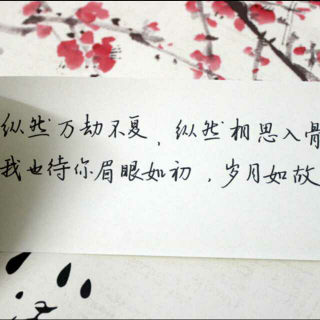 纵然万劫不复，纵然相思入骨
我也待你眉眼如初，岁月如故